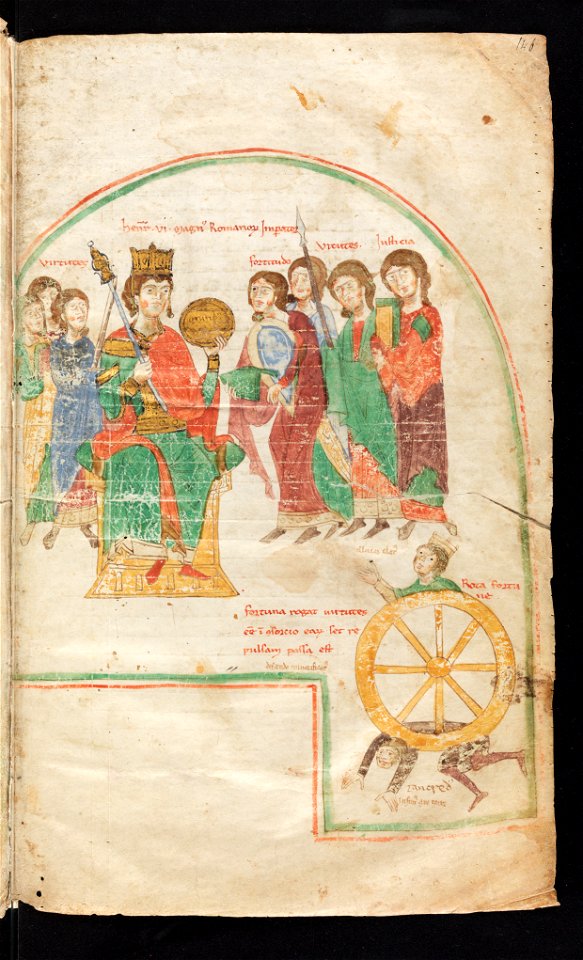 146
henr' vi magn' Romanor' Imperator
virtutes
fortitudo
Virtutes
Justicia
Rota fortu
ne
fortuna rogat virtutes
eē ī cōsorcio earū set re
pulsam passa est
tancred'